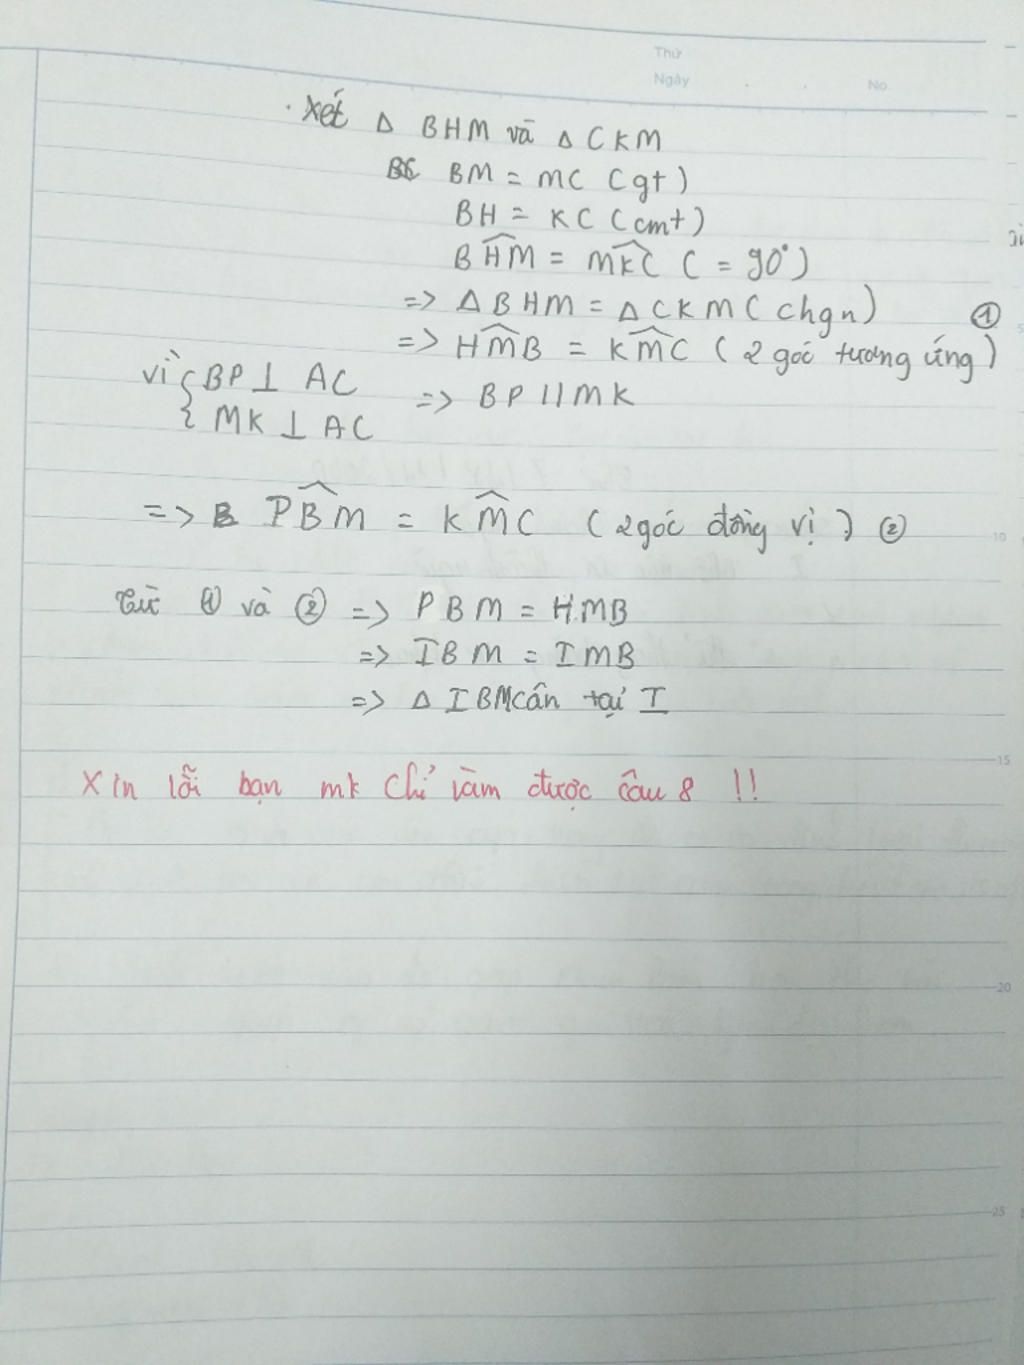 Thứ
Ngày No.
. Xét Δ BHM và Δ CKM
BM = MC (gt)
BH = KC (cmt)
BĤM = MK̂C ( = 90°)
=> Δ BHM = Δ CKM ( chgn) ①
=> HM̂B = KM̂C ( 2 góc tương ứng)
vì { BP ⊥ AC
{ MK ⊥ AC => BP // MK
=> B PB̂M = KM̂C ( 2 góc đồng vị ) ②
Từ ① và ② => PBM = HMB
=> IBM = IMB
=> Δ IBM cân tại I
Xin lỗi bạn mk chỉ làm được câu 8 !!
10
15
20
25